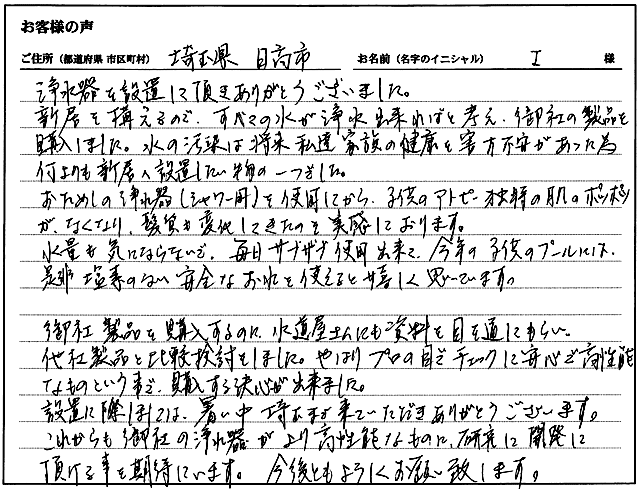 お客様の声
ご住所（都道府県 市区町村） 埼玉県 日高市 お名前（名字のイニシャル） I 様
浄水器を設置して頂きありがとうございました。
新居を構えるので、すべての水が浄水出来ればと考え、御社の製品を
購入しました。水の汚染は将来私達家族の健康を害す不安があった為
何よりも新居へ設置したい物の一つでした。
おためしの浄水器（シャワー用）を使用してから、子供のアトピー独特の肌のポツポツ
が、なくなり、髪質も変化してきたのを実感しております。
水量も気にならないで、毎日ザブザブ使用出来て、今年の子供のプールには、
是非塩素のない安全なお水を使えると嬉しく思っています。
御社製品を購入するのに、水道屋さんにも資料を目を通してもらい、
他社製品と比較検討をしました。やはりプロの目でチェックして安心で高性能
なものという事で、購入する決心が出来ました。
設置に際しましては、暑い中埼玉まで来ていただきありがとうございます。
これからも御社の浄水器がより高性能なものに、研究して開発して
頂ける事を期待しています。 今後ともよろしくお願い致します。